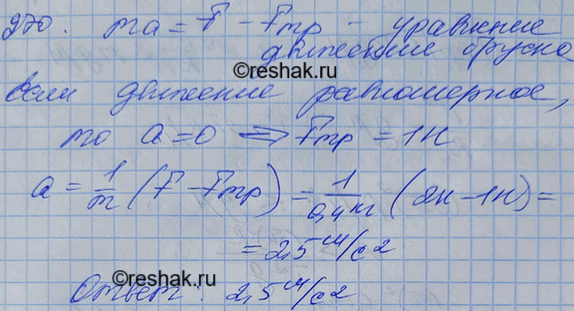 270. ma = F - Fтр - уравнение
движение бруска
©reshak.ru
Если движение равномерное,
то a = 0 ⇒ Fтр = 1Н
a = 1/m (F - Fтр) = 1/0,4кг (2Н - 1Н) =
= 2,5 м/с2
©reshak.ru
Ответ: 2,5 м/с2